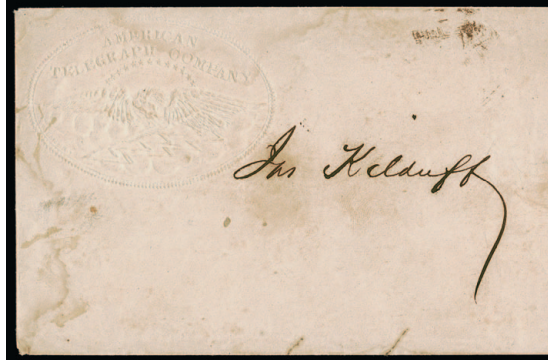 AMERICAN
TELEGRAPH COMPANY
Jas Kelduff